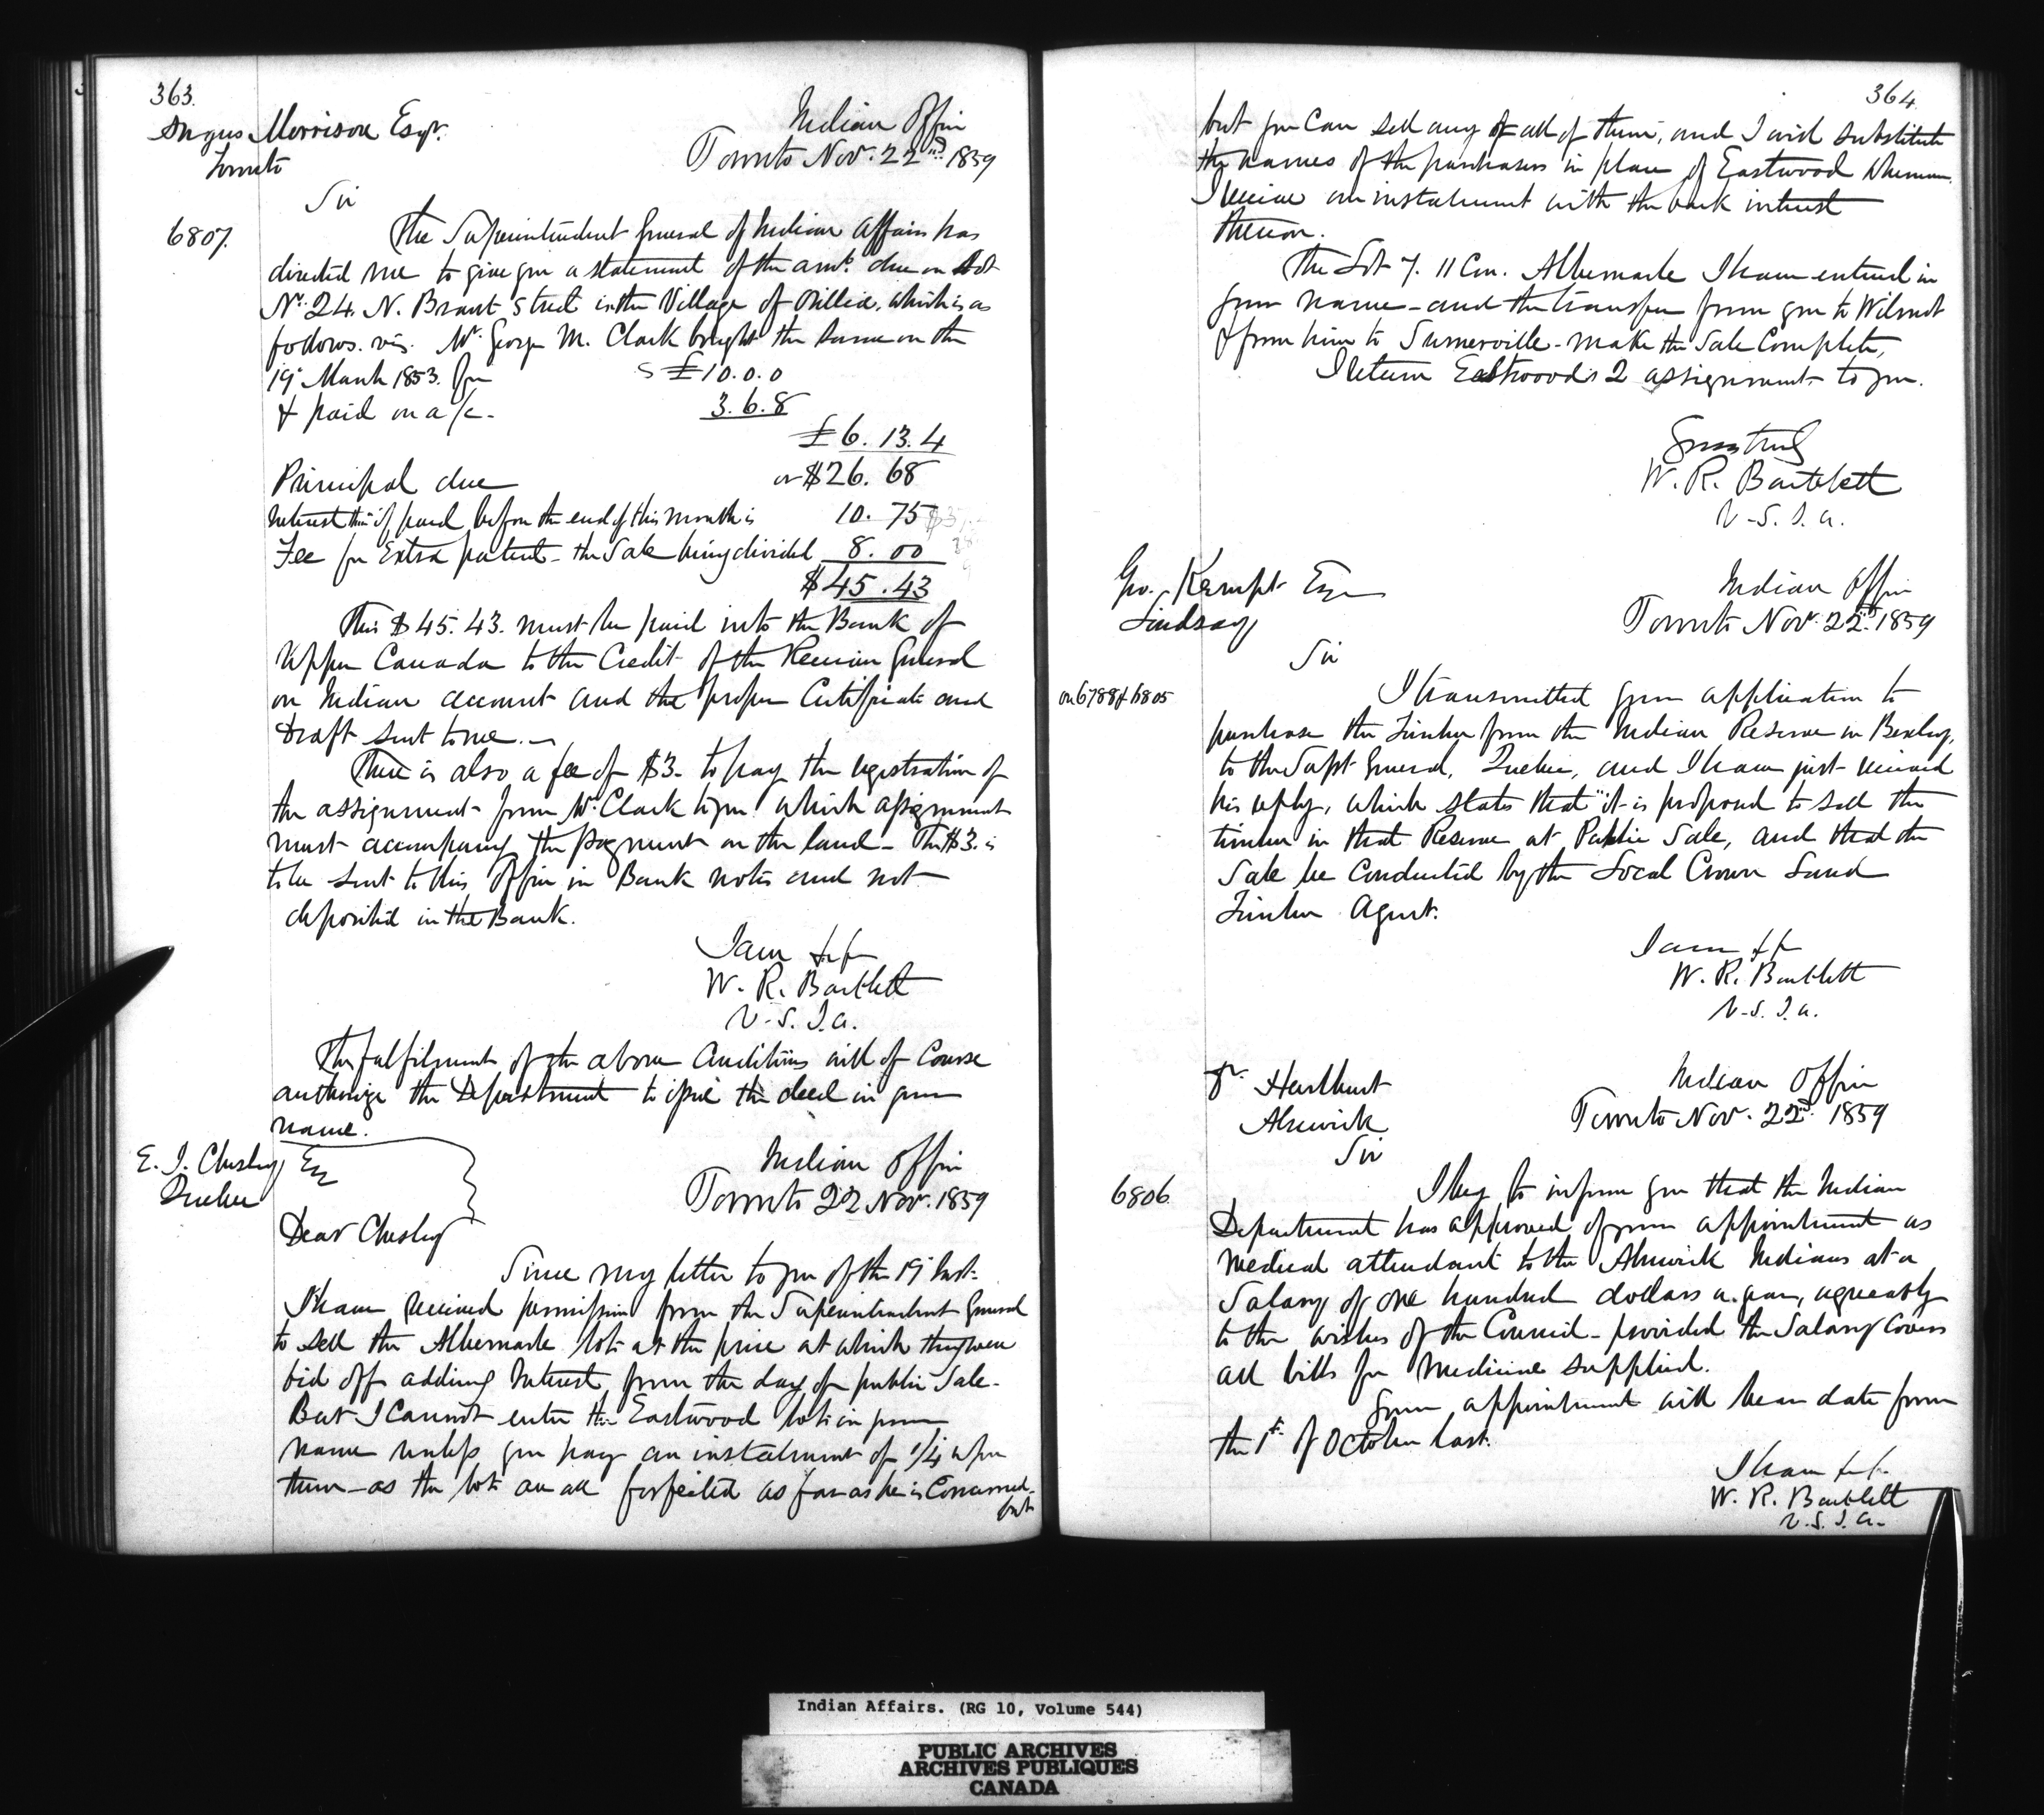 363.
Angus Morrison Esqr.
Toronto
Indian Office
Toronto Nov. 22nd 1859
Sir
6807.
The Superintendent General of Indian Affairs has
directed me to give you a statement of the amt. due on Lot
No. 24. N. Brant Street in the Village of Orillia. which is as
follows. viz. Mr. George M. Clark bought the same on the
19th March 1853. for £10.0.0
& paid on a/c - 3.6.8
£6.13.4
Principal due or $26.68
Interest thereon if paid before the end of this month is 10.75
Fee for Extra patent - the Sale being divided 8.00
$45.43
This $45.43. must be paid into the Bank of
Upper Canada to the Credit of the Receiver General
on Indian account and the proper Certificate and
Draft sent to me. -
There is also a fee of $3- to pay the registration of
the assignment from Mr. Clark to you which assignment
must accompany the payment on the land - The $3. is
to be sent to this Office in Bank notes and not
deposited in the Bank.
I am &c
W. R. Bartlett
V.S.I.A.
The fulfilment of the above Conditions will of Course
authorize the Department to issue the deed in your
name.
E. J. Chesley Esq
Quebec
Indian Office
Toronto 22 Nov. 1859
Dear Chesley
Since my letter to you of the 19th Inst.
I have received permission from the Superintendent General
to sell the Albemarle lots at the price at which they were
bid off adding Interest from the day of public Sale -
But I Cannot enter the Eastwood lots in your
name unless you pay an instalment of 1/4 upon
them - as the lots are all forfeited as far as he is Concerned -
but
364
but you Can sell any of all of them, and I will substitute
the names of the purchasers in place of Eastwood Whenever
I receive an instalment with the back interest
thereon.
The Lot 7. 11 Con. Albemarle I have entered in
your name - and the transfer from you to Wilmot
& from him to Sumerville - make the Sale Complete,
I return Eastwood's 2 assignments to you.
Yours truly
W. R. Bartlett
V-S.I.A.
Geo. Kempt Esq
Lindsay
Indian Office
Toronto Nov. 22nd. 1859
Sir
on 6788 & 6805
I transmitted your application to
purchase the Timber from the Indian Reserve in Bexley,
to the Supt General, Quebec, and I have just received
his reply, which states that "it is proposed to sell the
timber in that Reserve at Public Sale, and that the
Sale be Conducted by the Local Crown Land
Timber Agent.
I am &c
W. R. Bartlett
V-S.I.A.
Dr. Hurlburt
Alnwick
Indian Office
Toronto Nov. 22nd. 1859
Sir
6806.
I beg to inform you that the Indian
Department has approved of your appointment as
Medical attendant to the Alnwick Indians at a
Salary of one hundred dollars a year, agreeably
to the wishes of the Council - provided the Salary Covers
all bills for Medicine supplied.
Your appointment will bear date from
the 1st of October last.
I have &c.
W. R. Bartlett
V.S.I.A.
Indian Affairs. (RG 10, Volume 544)
PUBLIC ARCHIVES
ARCHIVES PUBLIQUES
CANADA